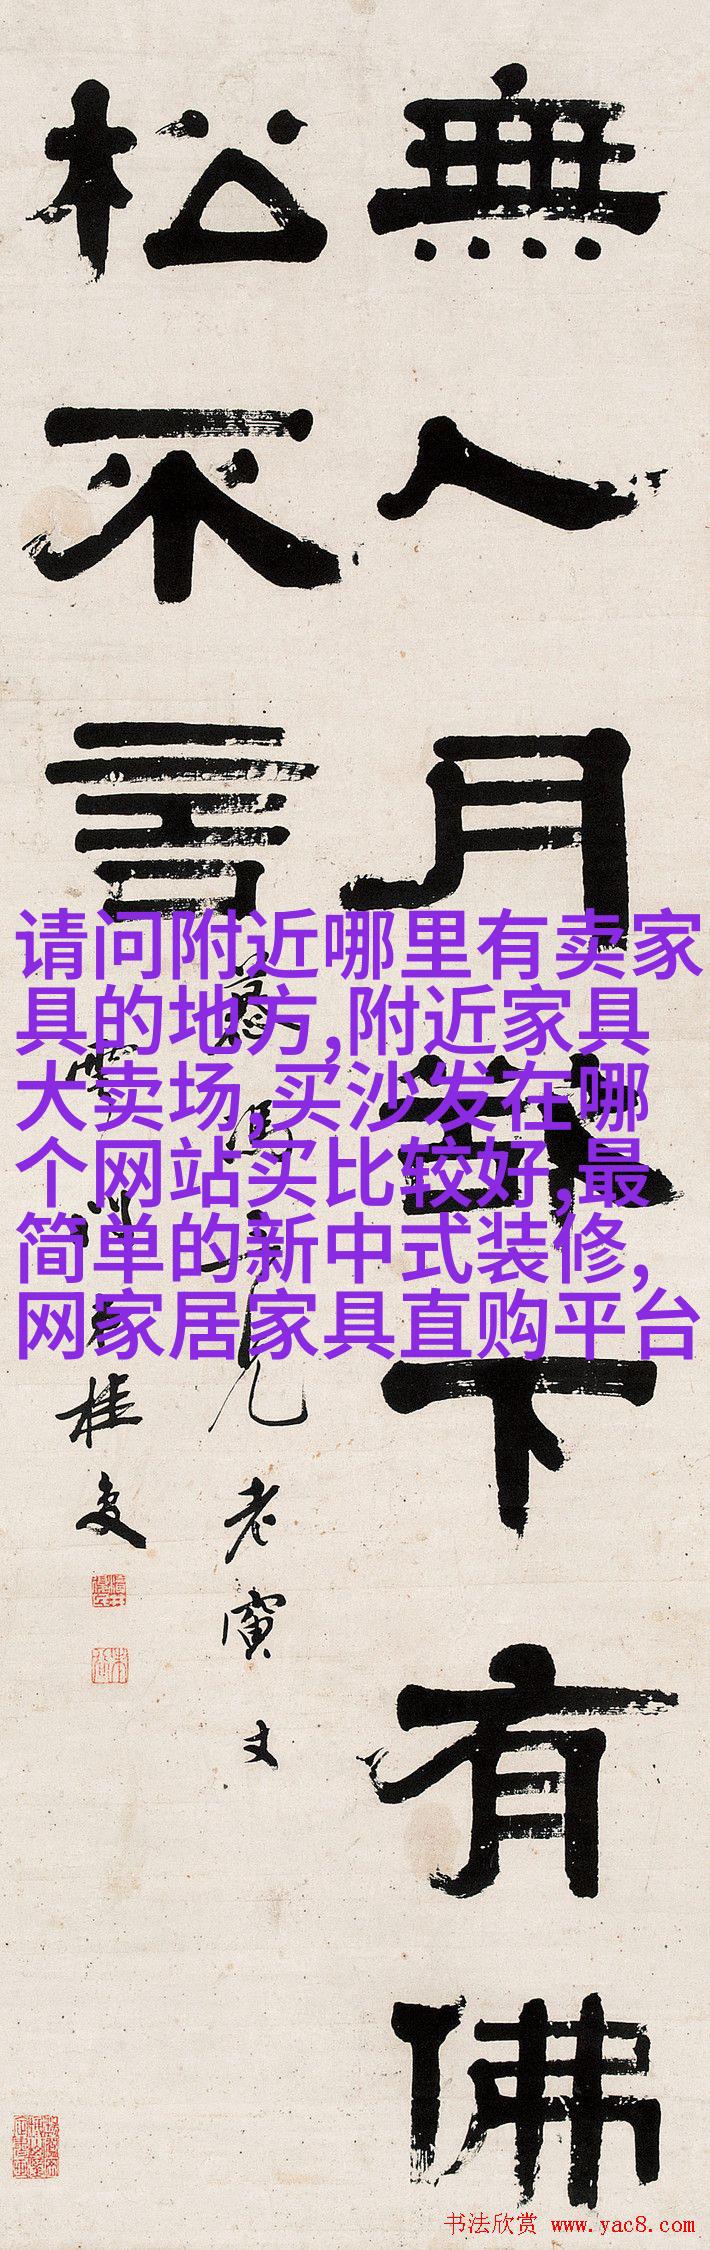 無人月下有佛
松不言
兄老
桂
请问附近哪里有卖家
具的地方,附近家具
大卖场,买沙发在哪
个网站买比较好,最
简单的新中式装修,
网家居家具直购平台
书法欣赏 www.yac8.com